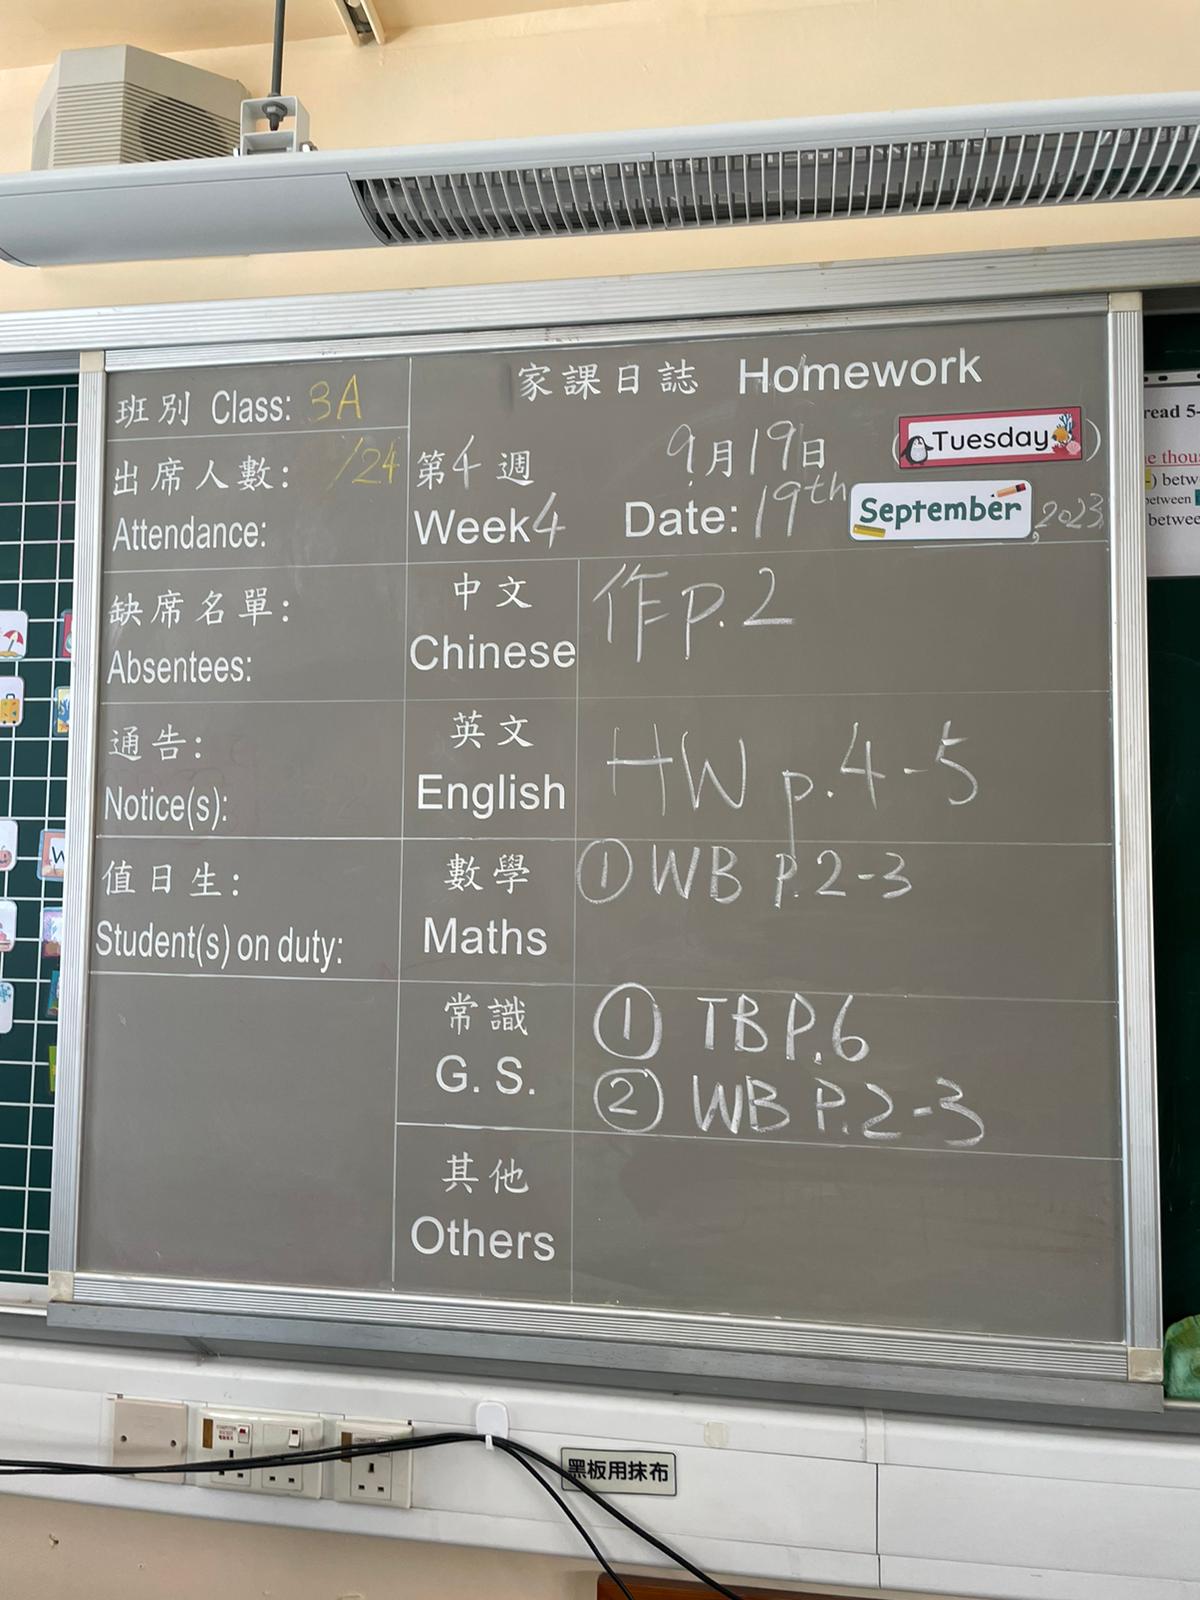 班別 Class: 3A
出席人數: /24
Attendance:
缺席名單:
Absentees:
通告:
Notice(s):
值日生:
Student(s) on duty:
家課日誌 Homework
第4週 9月19日 (Tuesday)
Week4 Date: 19th September, 2023
中文
Chinese
作 p.2
英文
English
HW p.4-5
數學
Maths
① WB P.2-3
常識
G. S.
① TB P.6
② WB P.2-3
其他
Others
read 5-
) betw
between
betwee
黑板用抹布